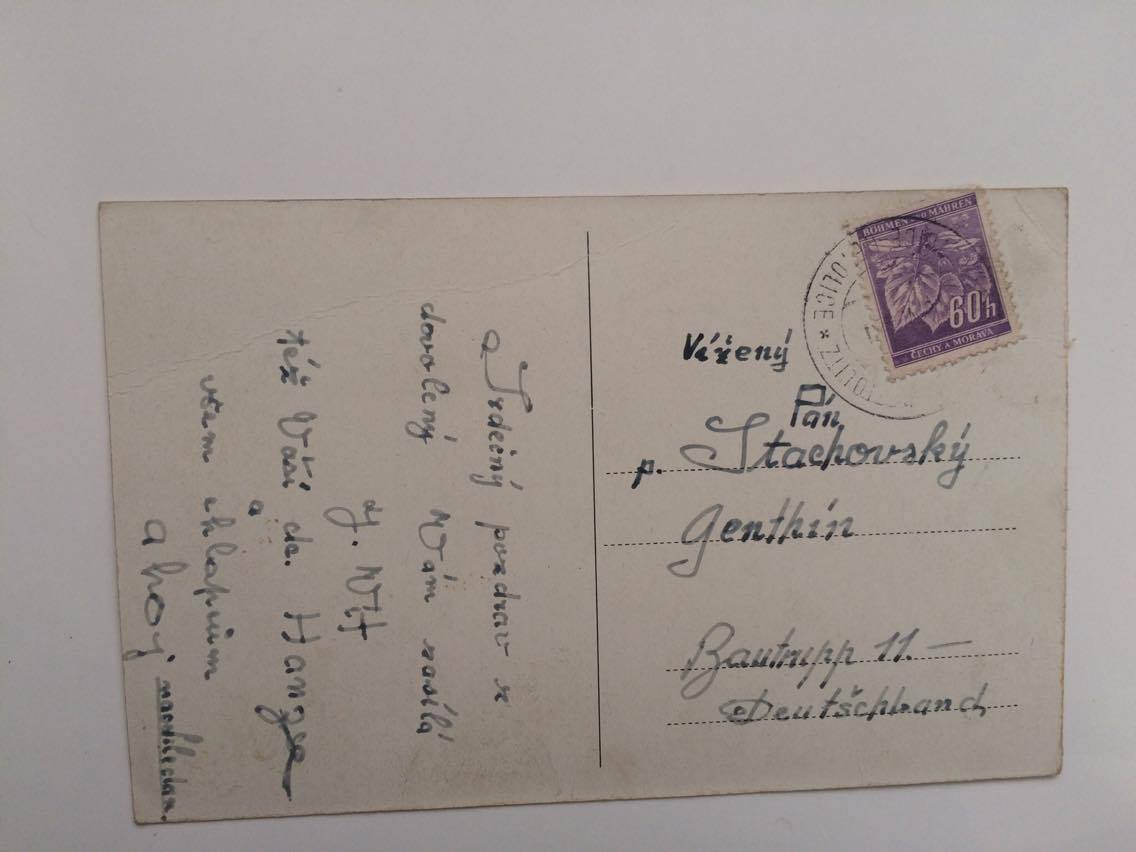 Srdečný pozdrav z
dovolený Vám zasílá
J. Vít
též Vaší dc. Hanzse
a
všem chlapům
ahoj. nasvhledan.
BÖHMEN UND MÄHREN
60h
ČECHY A MORAVA
OLICE * OLITZ
Vížený
Pán
p. Stachovský
Genthin
Bautrupp 11.—
Deutschland